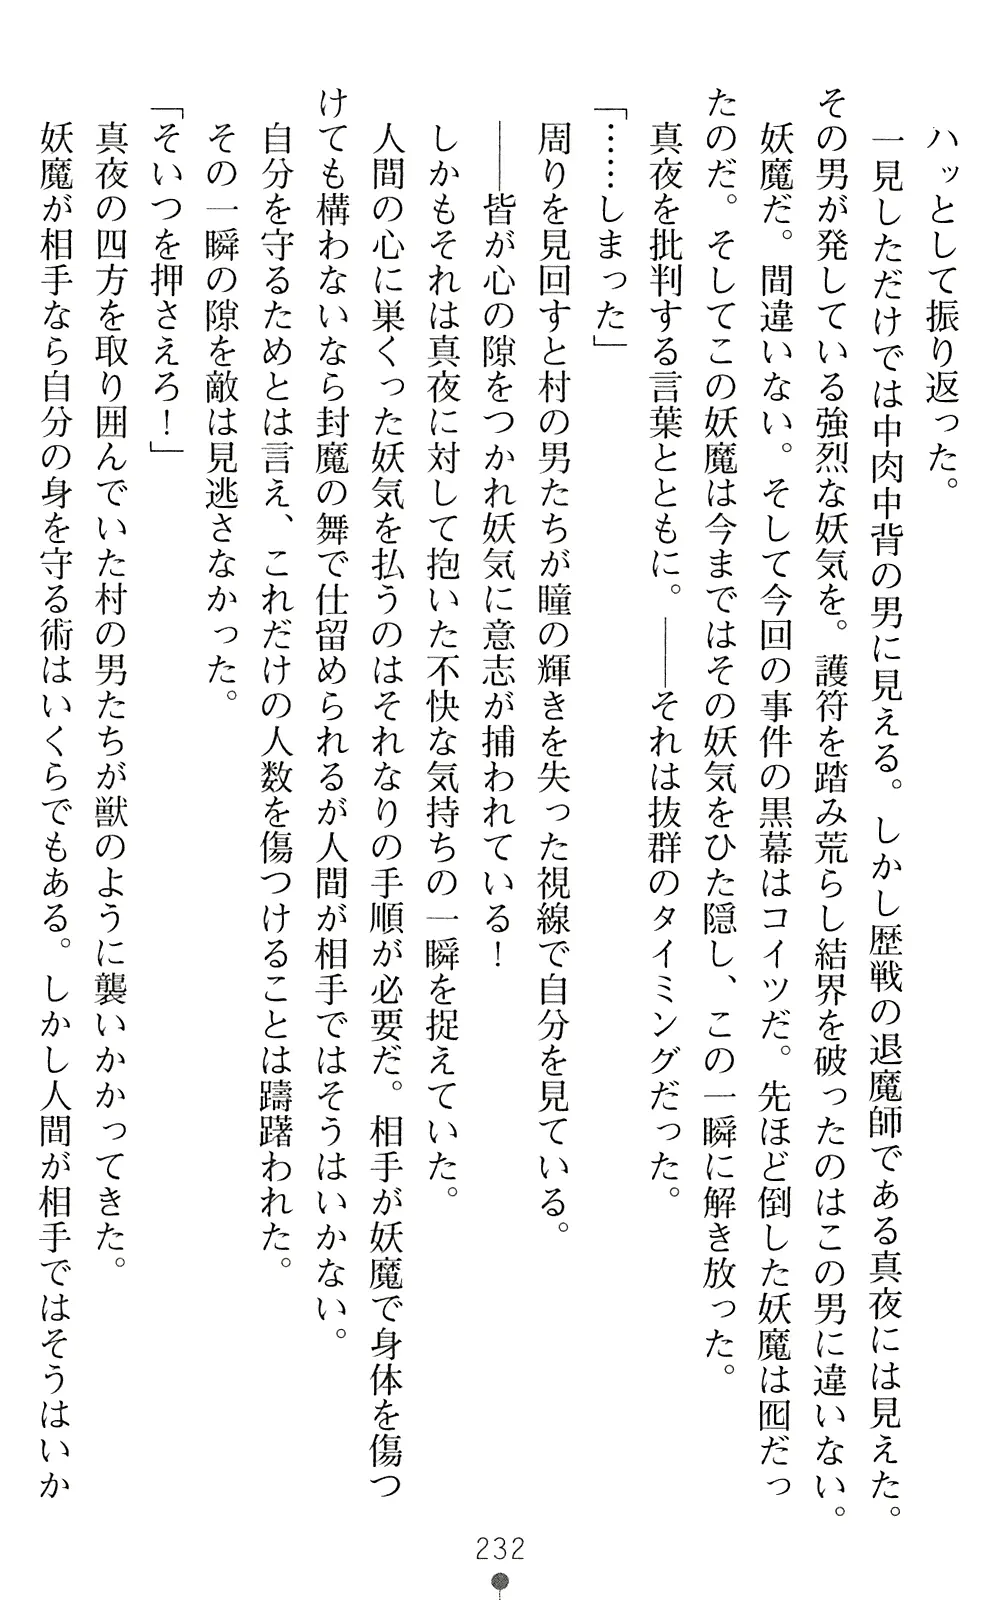 ハッとして振り返った。
一見しただけでは中肉中背の男に見える。しかし歴戦の退魔師である真夜には見えた。
その男が発している強烈な妖気を。護符を踏み荒らし結界を破ったのはこの男に違いない。
妖魔だ。間違いない。そして今回の事件の黒幕はコイツだ。先ほど倒した妖魔は囮だっ
たのだ。そしてこの妖魔は今まではその妖気をひた隠し、この一瞬に解き放った。
真夜を批判する言葉とともに。――それは抜群のタイミングだった。
「……しまった」
周りを見回すと村の男たちが瞳の輝きを失った視線で自分を見ている。
――皆が心の隙をつかれ妖気に意志が捕われている！
しかもそれは真夜に対して抱いた不快な気持ちの一瞬を捉えていた。
人間の心に巣くった妖気を払うのはそれなりの手順が必要だ。相手が妖魔で身体を傷つ
けても構わないなら封魔の舞で仕留められるが人間が相手ではそうはいかない。
自分を守るためとは言え、これだけの人数を傷つけることは躊躇われた。
その一瞬の隙を敵は見逃さなかった。
「そいつを押さえろ！」
真夜の四方を取り囲んでいた村の男たちが獣のように襲いかかってきた。
妖魔が相手なら自分の身を守る術はいくらでもある。しかし人間が相手ではそうはいか
232